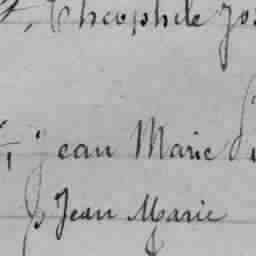 Théophile
Jean Marie
Jean Marie